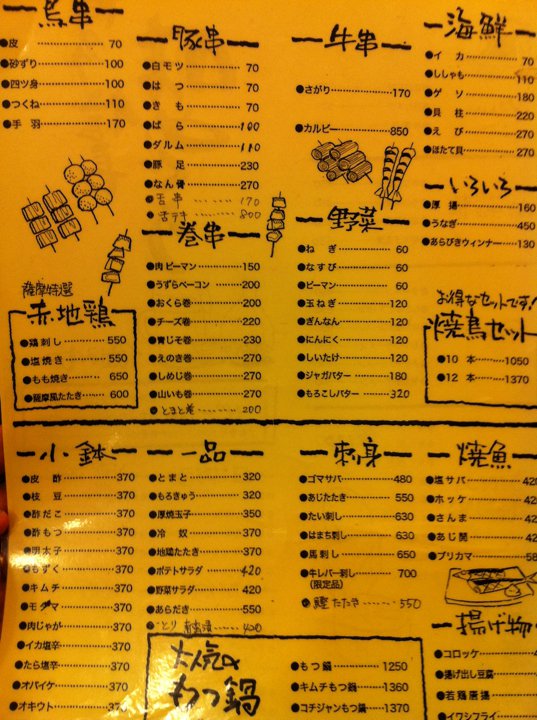 鳥串
●皮 70
●砂ずり 100
●四ツ身 100
●つくね 110
●手羽 170
豚串
●白モツ 70
●はつ 70
●きも 70
●ばら 100
●ダルム 110
●豚足 230
●なん骨 270
●舌串 170
800
牛串
●さがり 170
●カルビー 850
海鮮
●イカ 70
●ししゃも 110
●ゲソ 180
●貝柱 220
●えび 270
●ほたて貝 270
いろいろ
●厚揚 160
●うなぎ 450
●あらびきウィンナー 130
巻串
●肉ピーマン 150
●うずらベーコン 200
●おくら巻 200
●チーズ巻 220
●青じそ巻 270
●えのき巻 270
●しめじ巻 270
●山いも巻 270
●とまと巻 200
野菜
●ねぎ 60
●なすび 60
●ピーマン 60
●玉ねぎ 120
●ぎんなん 120
●にんにく 120
●しいたけ 120
●ジャガバター 180
●もろこしバター 320
薩摩特選
赤地鶏
●鶏刺し 550
●塩焼き 550
●もも焼き 650
●薩摩風たたき 600
お得なセットです!
焼鳥セット
●10本 1050
●12本 1370
小鉢
●皮酢 370
●枝豆 370
●酢だこ 370
●酢もつ 370
●明太子 370
●もずく 370
●キムチ 370
●モヅマ 370
●肉じゃが 370
●イカ塩辛 370
●たら塩辛 370
●オバイケ 370
●オキウト 370
一品
●とまと 320
●もろきゅう 320
●厚焼玉子 350
●冷奴 370
●地鶏たたき 370
●ポテトサラダ 420
●野菜サラダ 420
●あらだき 550
400
刺身
●ゴマサバ 480
●あじたたき 550
●たい刺し 630
●はまち刺し 630
●馬刺し 650
●牛レバー刺し 700
(限定品)
●鰹たたき 550
焼魚
●塩サバ 42
●ホッケ 42
●さんま 42
●あじ開 42
●ブリカマ 58
大人気の
もつ鍋
●もつ鍋 1250
●キムチもつ鍋 1360
●コチジャンもつ鍋 1370
揚げ物
●コロッケ
●揚げ出し豆腐
●若鶏唐揚
●イワシフライ